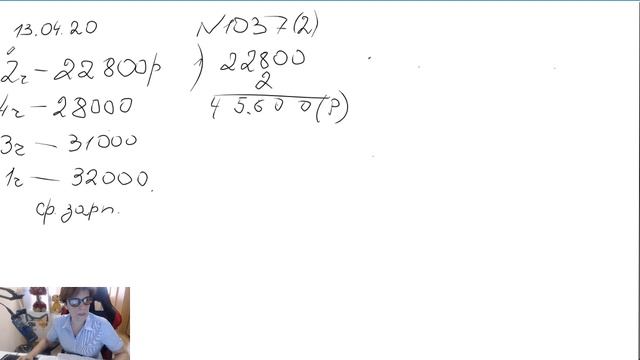 13.04.20
2ч – 22800р
4ч – 28000
3ч – 31000
1ч – 32000.
ср. зарп.
N1037(2)
1) 22800
2
45600(р)